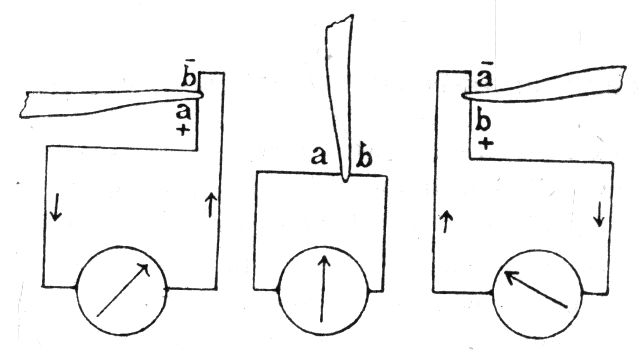 b̄
a
+
a b
ā
b
+